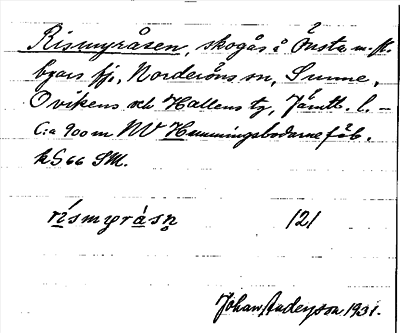 Rismyråsen, skogås å Önsta m. fl.
byars fj., Norderöns sn, Sunne,
Ovikens och Hallens tg, Jämtl. l. –
C:a 900 m NV Hemmingsbodarne fäb.
kS 66 SM.
rísmyråsn̥ 121
Johan Anderson 1931.